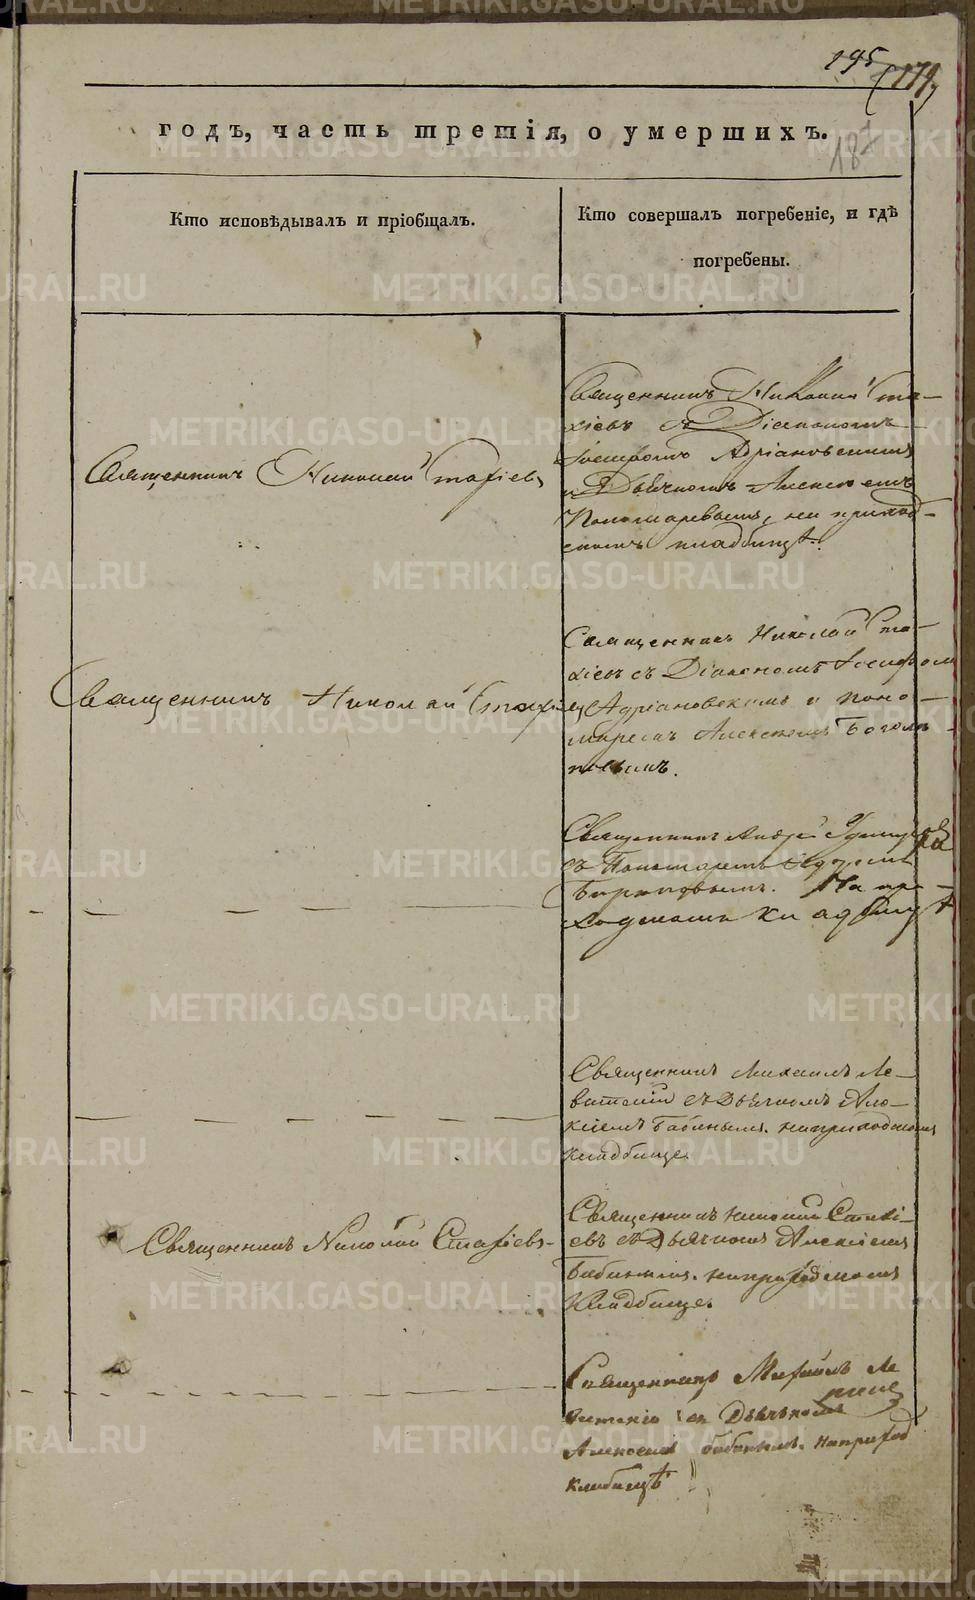 195
(179)
годъ, часть третія, о умершихъ.
187
Кто исповѣдывалъ и пріобщалъ.
Кто совершалъ погребеніе, и гдѣ
погребены.
Священникъ Николай Стахіевъ
Священникъ Николай Ста-
хіевъ съ Діакономъ
Іосифомъ Адріановскимъ
и Дьячкомъ Алексѣемъ
Пономаревымъ, на приход-
скомъ кладбищѣ.
Священникъ Николай Стахіевъ
Священникъ Николай Ста-
хіевъ съ Діакономъ Іосифомъ
Адріановскимъ и Поно-
маремъ Алексѣемъ
Священникъ Андрей
съ Пономаремъ
На при-
ходскомъ кладбищѣ
Священникъ Михаилъ Ле-
витскій съ Дьячкомъ Але-
ксіемъ Бабинымъ. на приходскомъ
кладбище.
Священникъ Николай Стахіевъ-
Священникъ Николай Стахі-
евъ съ Дьячкомъ Алексіемъ
Бабинымъ. на приходскомъ
Кладбище.
Священникъ Михаилъ Ле
витскій съ Дьячкомъ
Алексіемъ Бабинымъ. на приход
кладбищѣ
METRIKI.GASO-URAL.RU